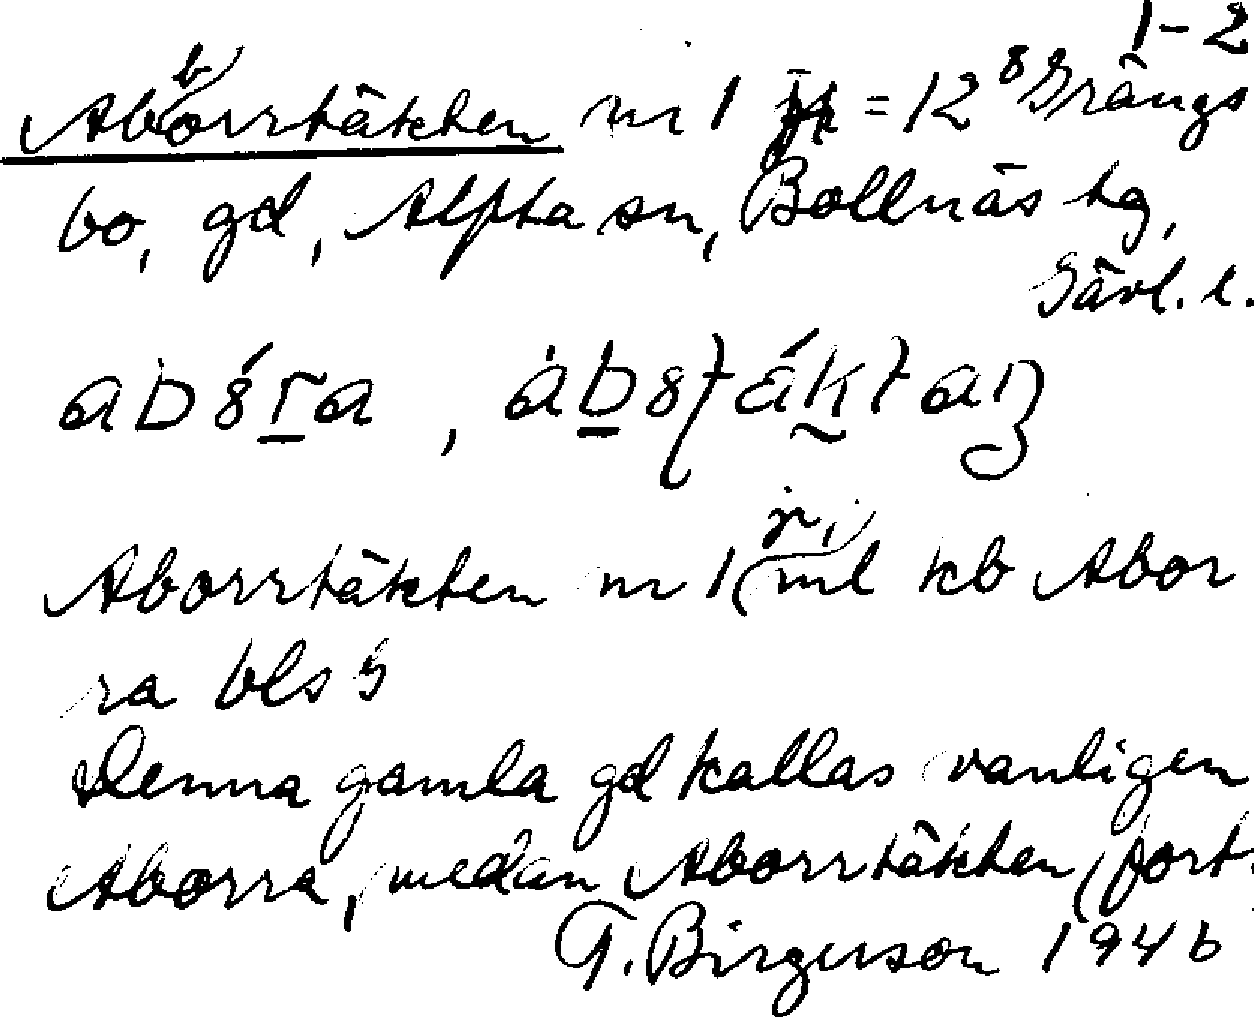 1-2
Abborrtäkten nr 1 = 12⁸ Grängs
bo, gd, Alfta sn, Bollnäs tg,
Gävl. l.
Aborrtäkten nr 1 (jr, ml kb Abor
ra bls 5
Denna gamla gd kallas vanligen
Aborra, medan Aborrtäkten (fort.
G. Birgerson 1946